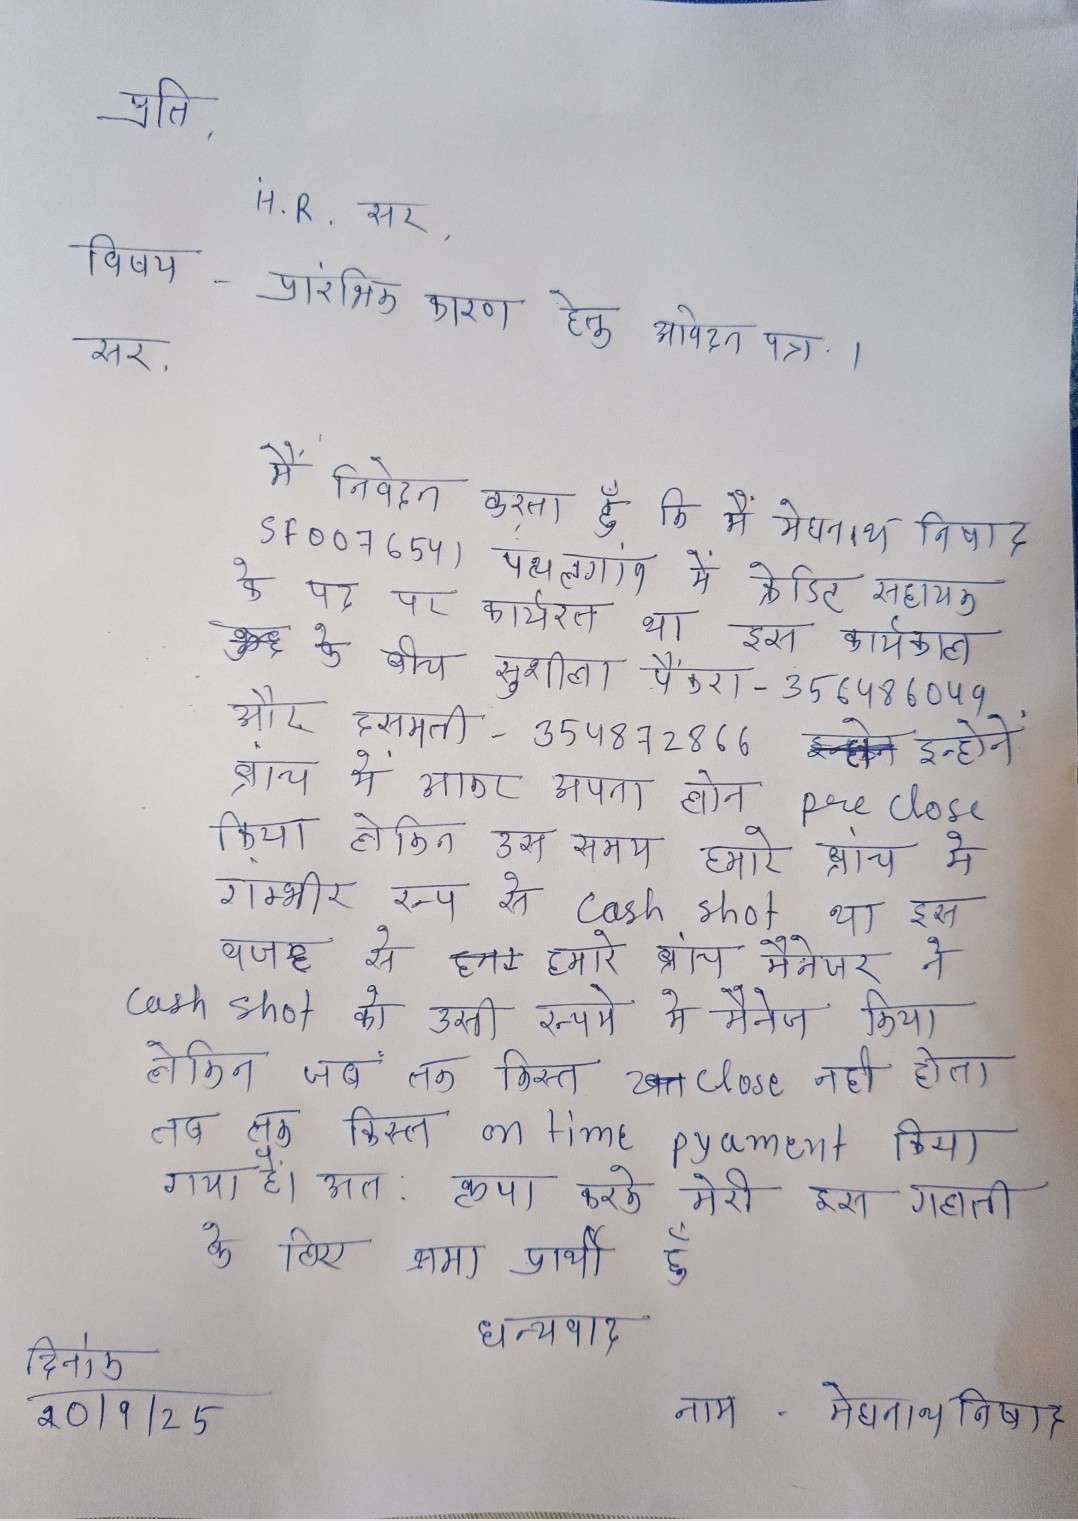 प्रति,
H.R. सर,
विषय - प्रारंभिक कारण हेतु आवेदन पत्र.।
सर.
मैं निवेदन करता हूँ कि मैं मेघनाथ निषाद
SF0076541 पत्थलगांव में क्रेडिट सहायक
के पद पर कार्यरत था इस कार्यकाल
के बीच सुशीला पैंकरा - 356486049
और दसमती - 354872866 इन्होनें
ब्रांच में आकर अपना लोन pre close
किया लेकिन उस समय हमारे ब्रांच मे
गम्भीर रूप से cash shot था इस
वजह से हमारे ब्रांच मैनेजर ने
cash shot को उसी रूपमे मे मैनेज किया
लेकिन जब तक किस्त close नही होता
तब तक किस्त on time pyament किया
गया है। अत: कृपा करके मेरी इस गलती
के लिए क्षमा प्रार्थी हूँ
धन्यवाद
दिनांक
20/9/25
नाम - मेघनाथ निषाद